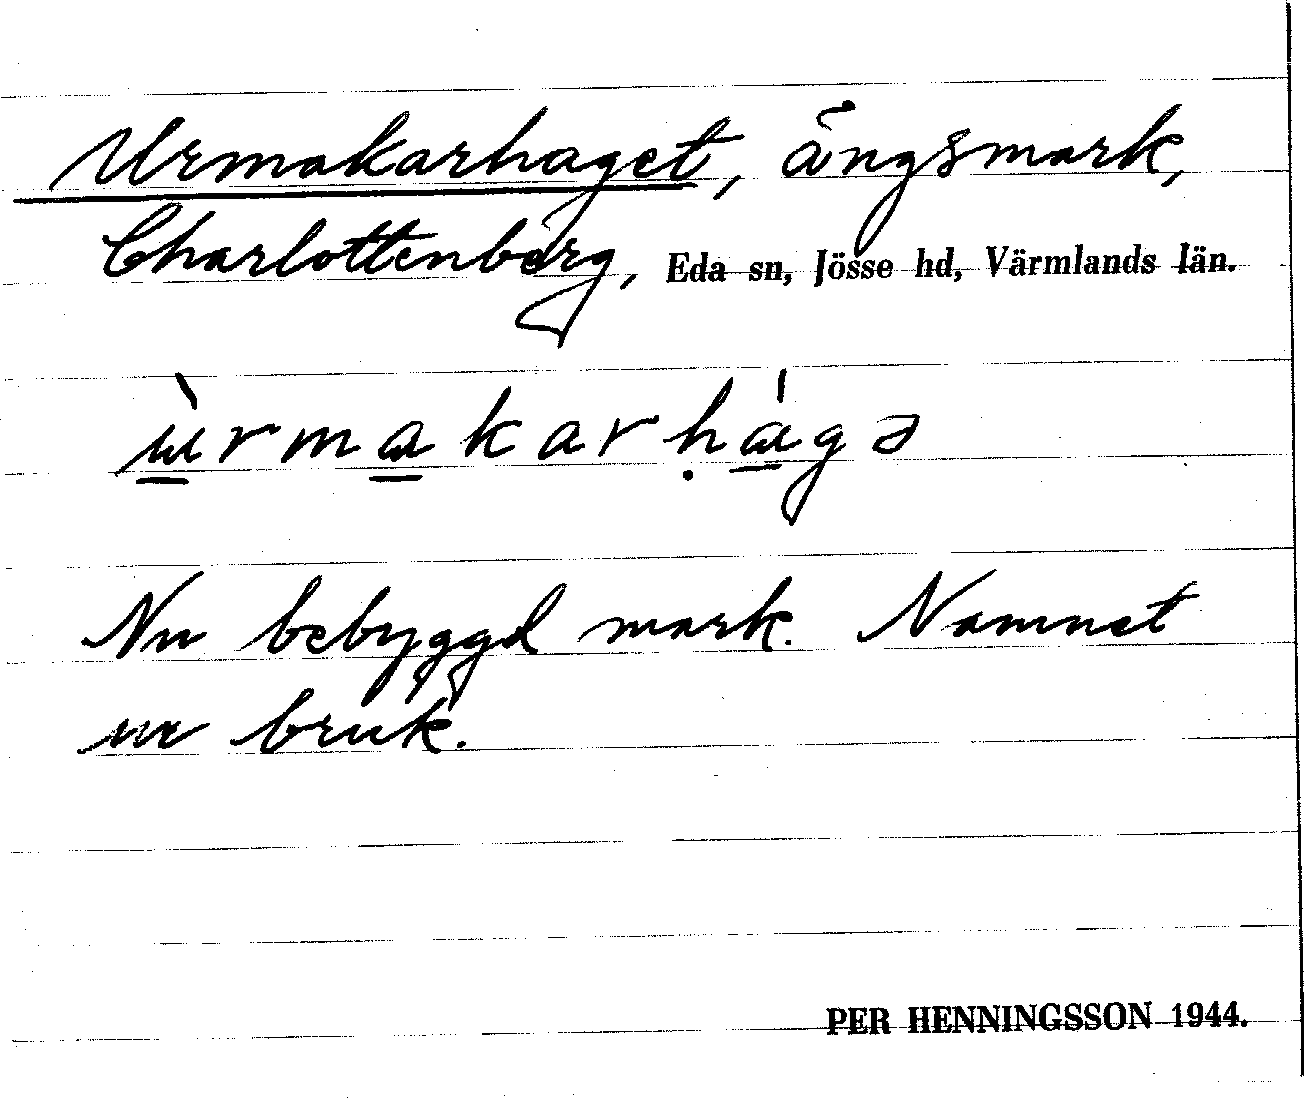 Urmakarhaget, ängsmark,
Charlottenberg, Eda sn, Jösse hd, Värmlands län.
ùrmakarḥágə
Nu bebyggd mark. Namnet
ur bruk.
PER HENNINGSSON 1944.